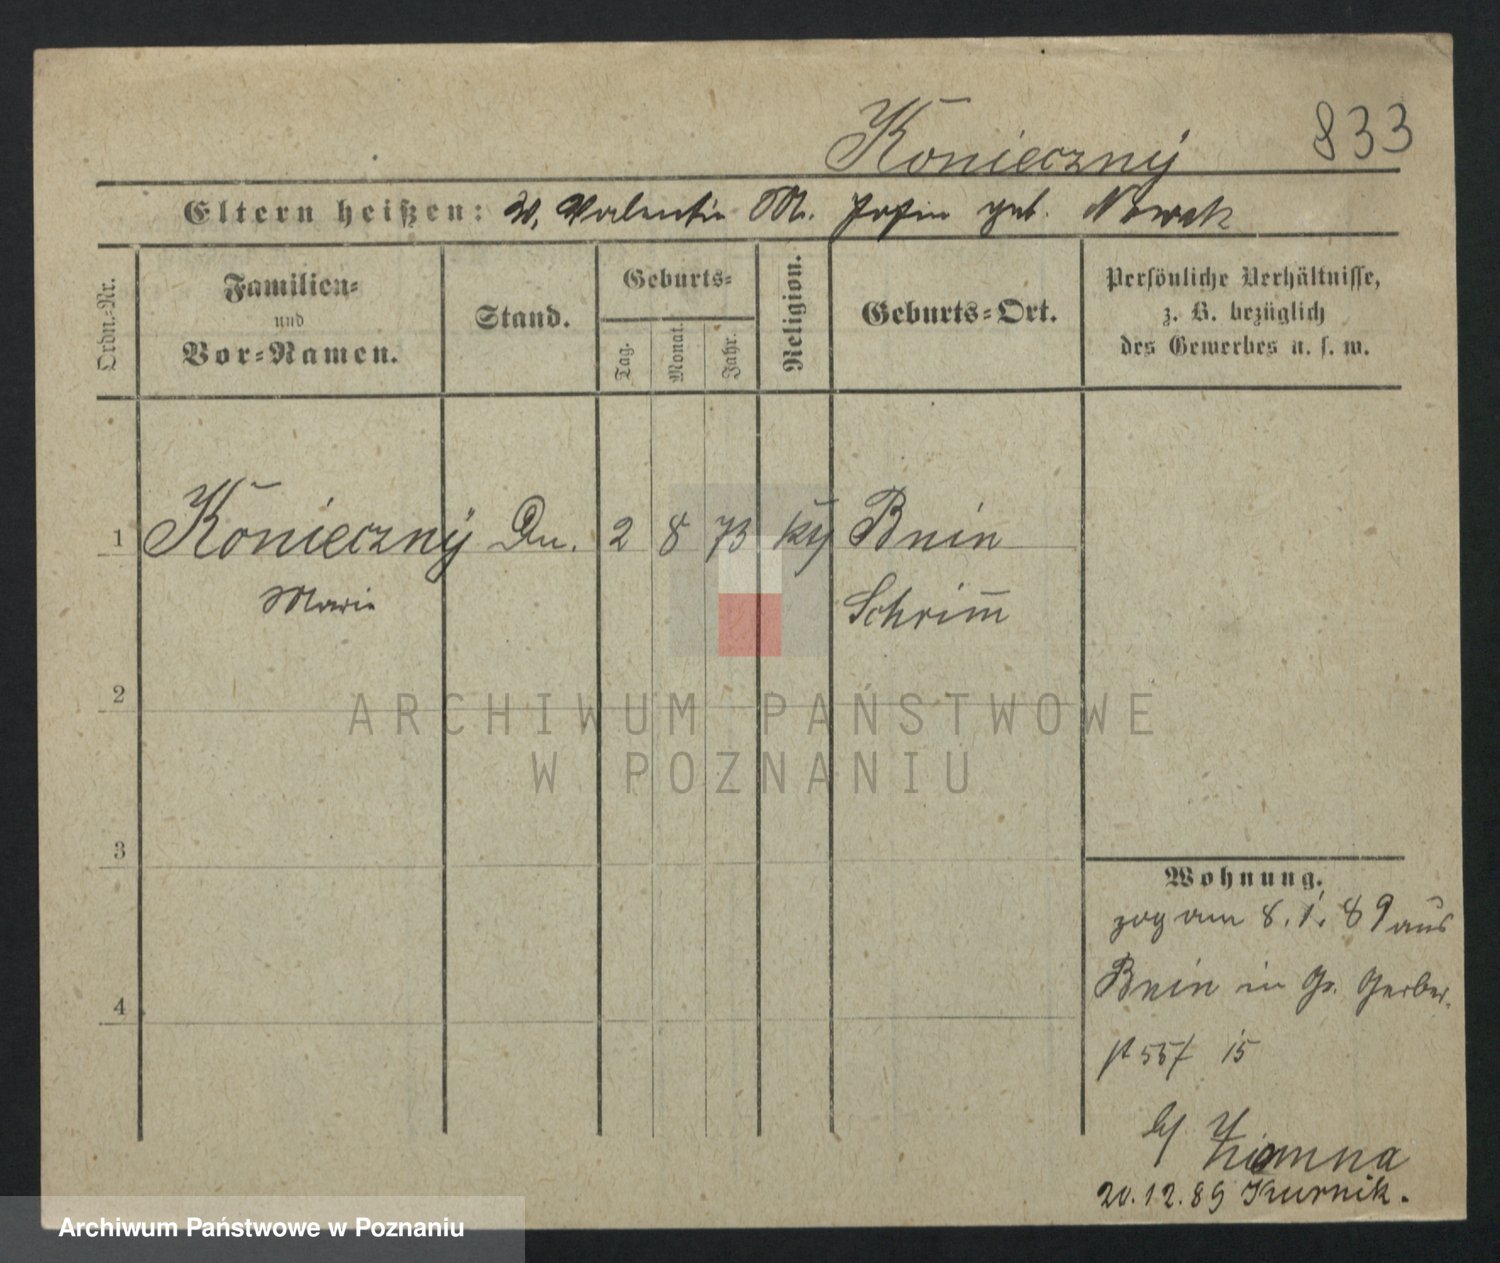 Konieczny 833
Eltern heißen: V. Valentin M. Josfin geb. Nowak
Ordn.-Nr.
Familien-
und
Vor-Namen.
Stand.
Geburts-
Tag. Monat. Jahr.
Religion.
Geburts-Ort.
Persönliche Verhältnisse,
z. B. bezüglich
des Gewerbes u. s. w.
1 Konieczny 2 8 73 Bnin
Marie Schrim̅
2
3
4
Wohnung.
zog am 8. 1. 89 aus
Bnin in Gr. Gerber
st 15
b/
20.12.89 Kurnik.
ARCHIWUM PAŃSTWOWE
W POZNANIU
Archiwum Państwowe w Poznaniu